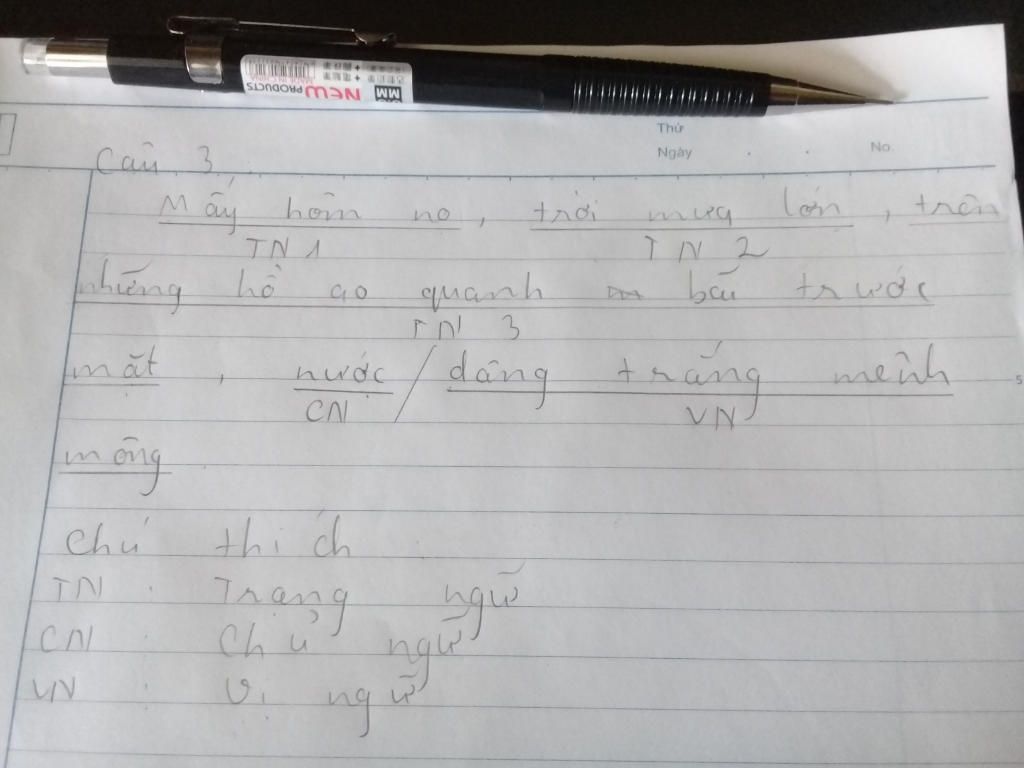 NEW
PRODUCTS
MM
Thứ
Ngày . . No.
Câu 3
Mấy hôm no, trời mưa lớn, trên
TN1 TN 2
những hồ ao quanh bãi trước
TN 3
mặt, nước / dâng trắng mênh
CN VN
mông
Chú thích
TN : Trạng ngữ
CN : Chủ ngữ
VN : Vị ngữ